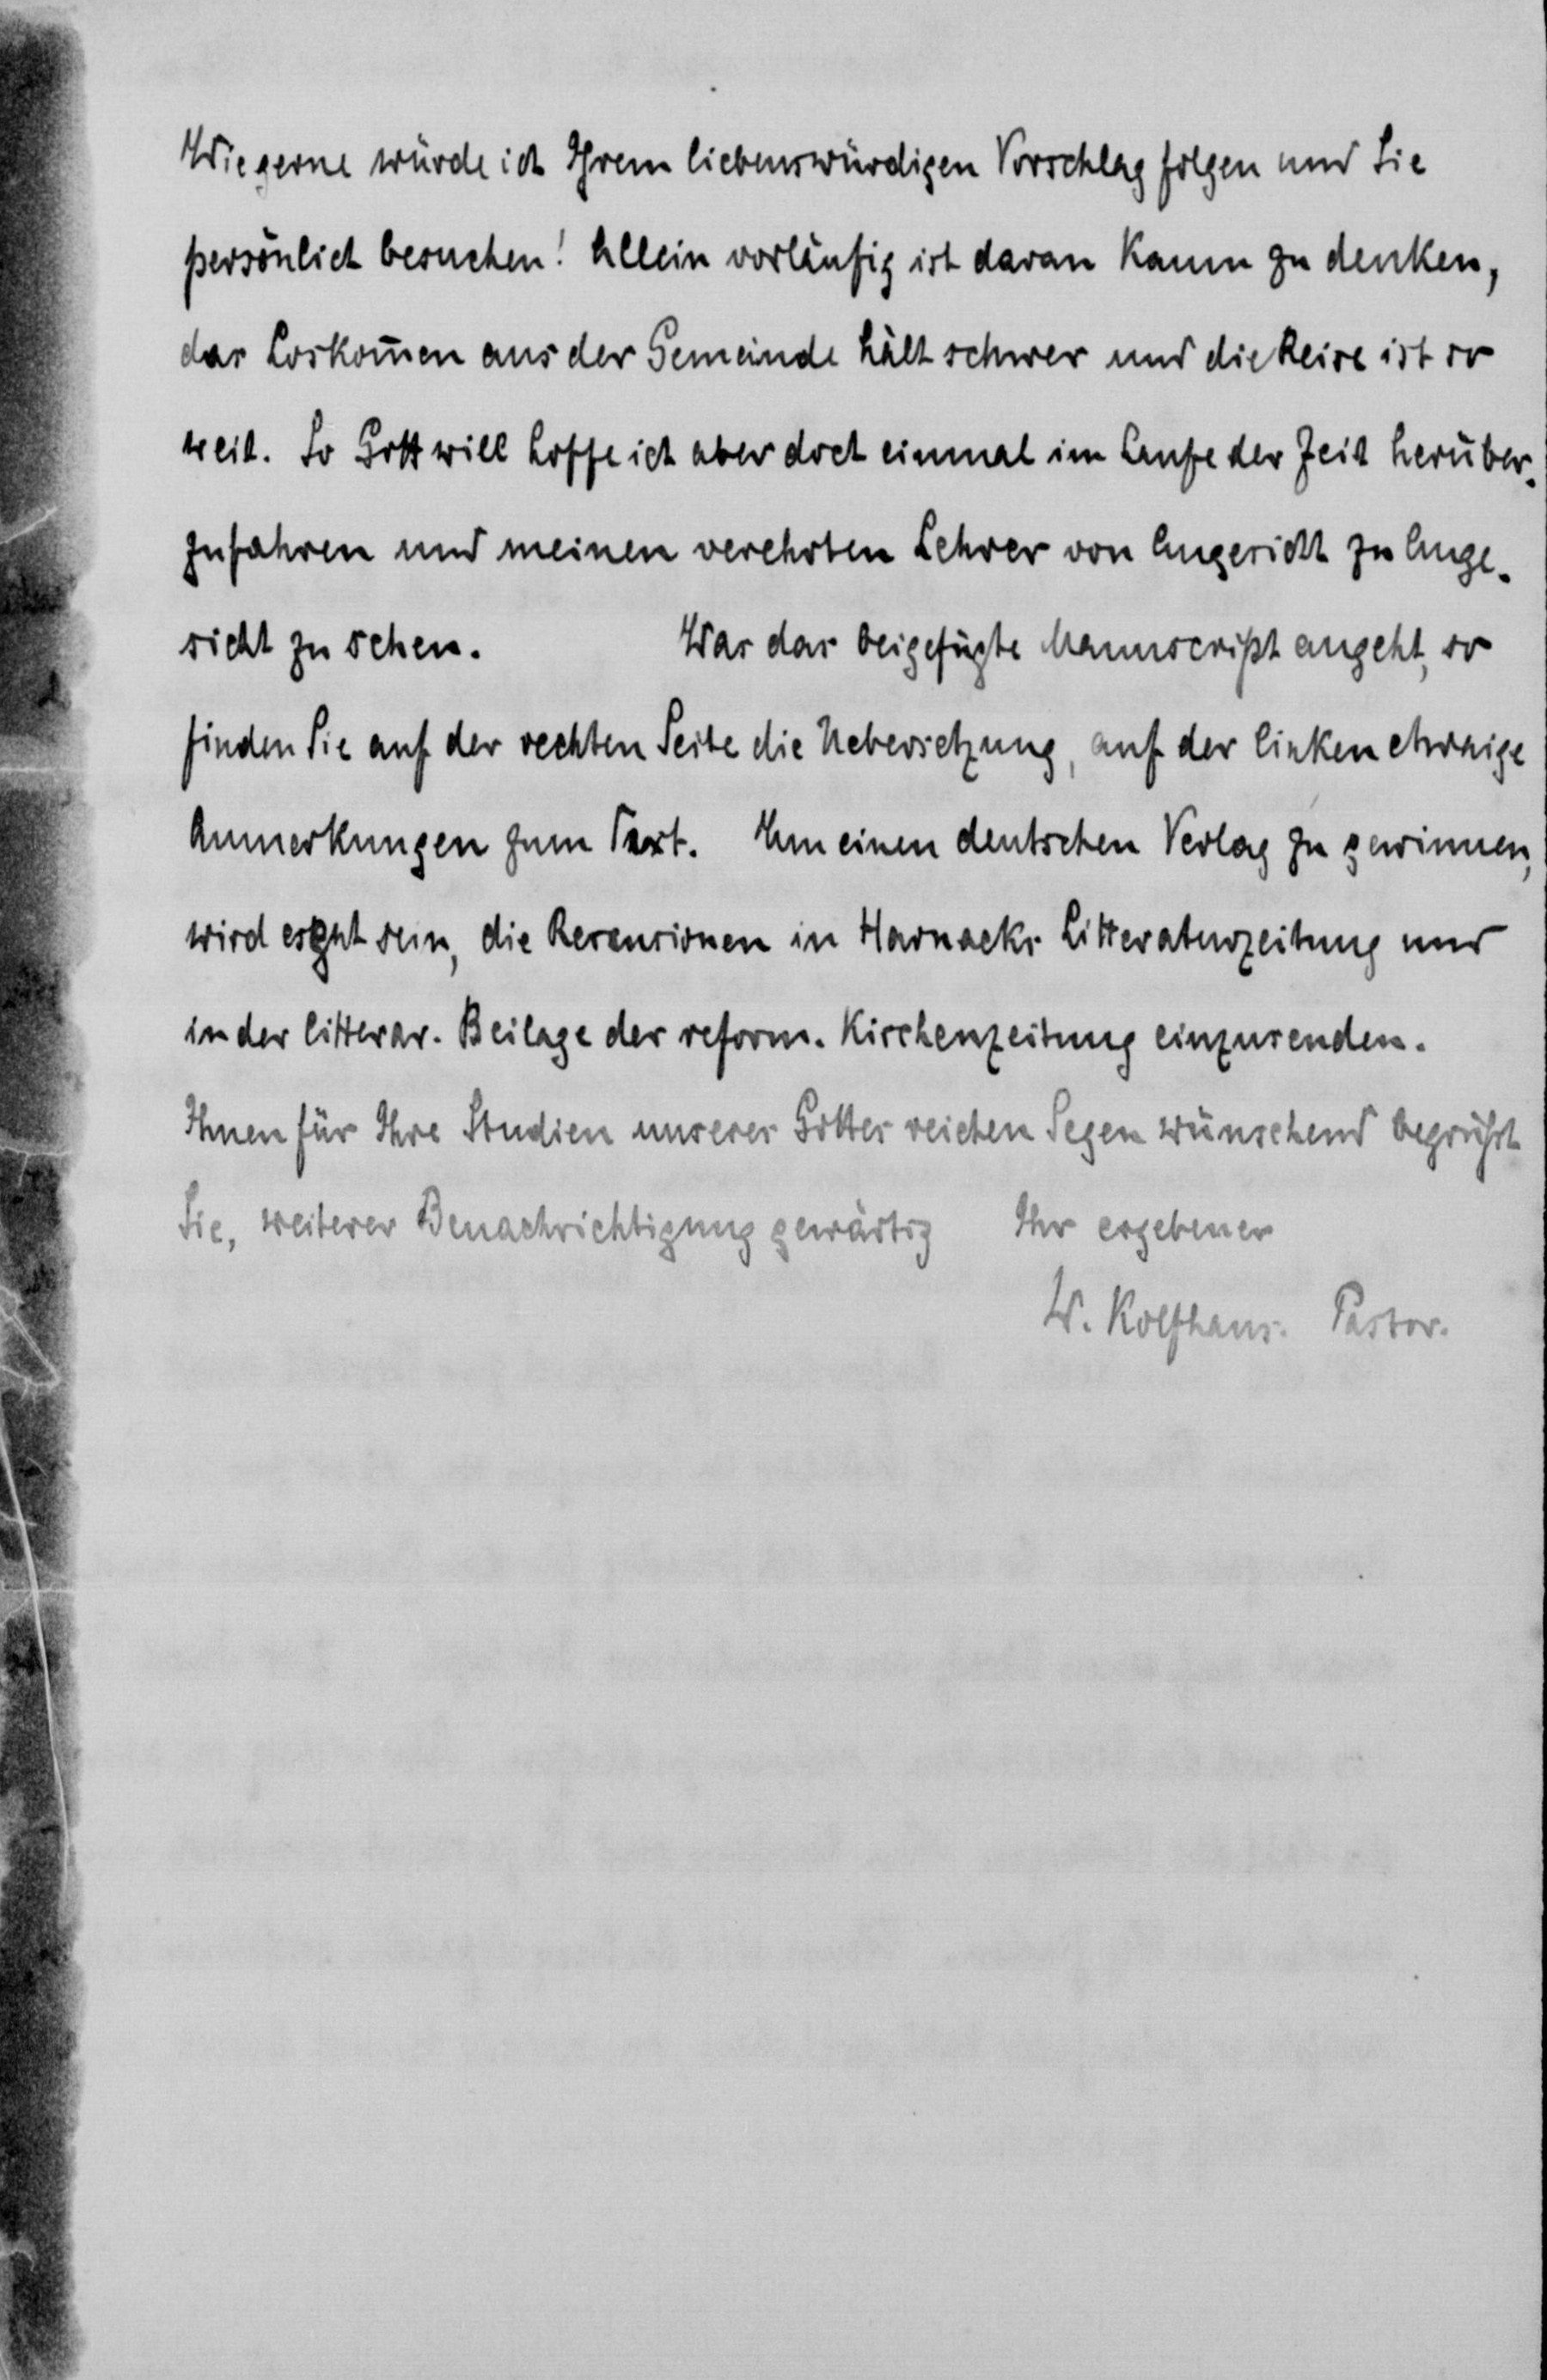 Wie gerne würde ich Ihrem liebenswürdigen Vorschlag folgen und Sie
persönlich besuchen! Allein vorläufig ist daran kaum zu denken,
das Loskom̄en aus der Gemeinde hält schwer und die Reise ist so
weit. So Gott will hoffe ich aber doch einmal im Laufe der Zeit herüber-
zufahren und meinen verehrten Lehrer von Angesicht zu Ange-
sicht zu sehen. Was das beigefügte Manuscript angeht, so
finden Sie auf der rechten Seite die Uebersetzung, auf der linken etwaige
Anmerkungen zum Text. Um einen deutschen Verlag zu gewinnen,
wird es gut sein, die Recensionen in Harnacks Litteraturzeitung und
in der litterar. Beilage der reform. Kirchenzeitung einzusenden.
Ihnen für Ihre Studien unseres Gottes reichen Segen wünschend begrüßt
Sie, weiterer Benachrichtigung gewärtig Ihr ergebener
W. Kolfhaus. Pastor.